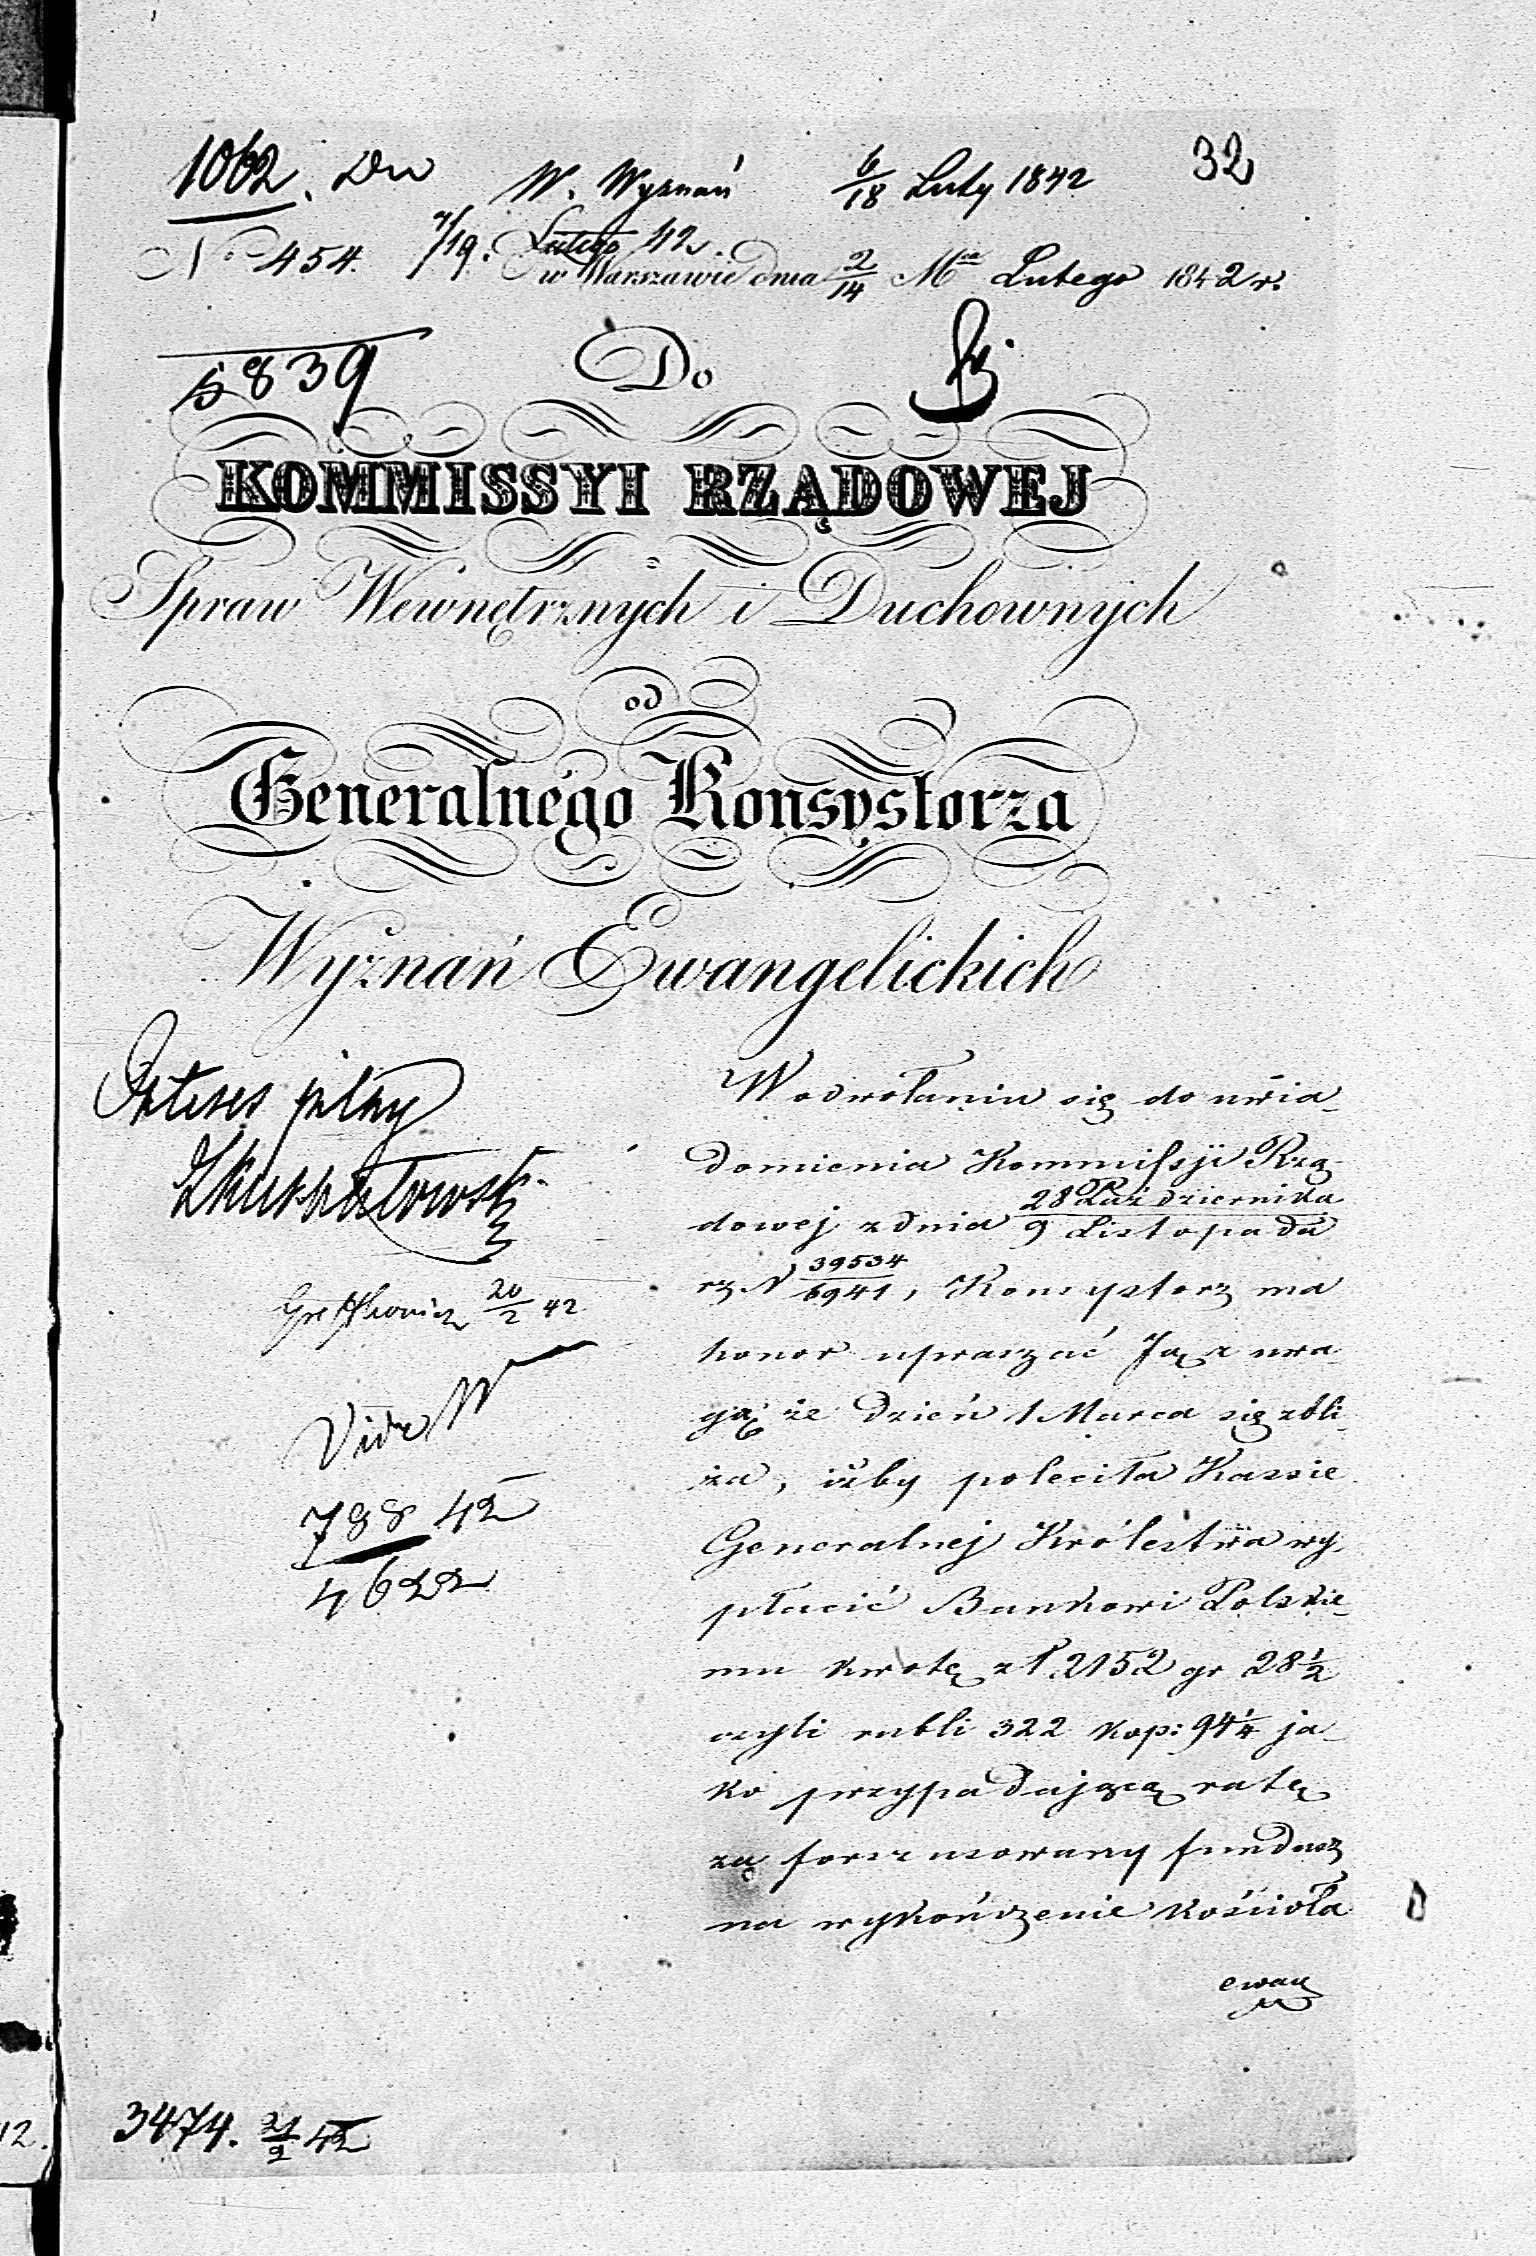 1062. Dn W. Wyznań 6/18 Luty 1842 32
No 454. 7/19. Lutego 42.
w Warszawie dnia 2/14 Mca Lutego 1842 r.
5839 Do
KOMMISSYI RZĄDOWEJ
Spraw Wewnętrznych i Duchownych
od
Generalnego Konsystorza
Wyznań Ewangelickich
pilny
20/2 42
Vide W
788 42
4622
W odwołaniu się do uwia-
domienia Kommissyi Rzą-
dowej z dnia 28 Października / 9 Listopada
rz. N 39534/6941, Konsystorz ma
honor upraszać Ją z uwa-
gą że dzień 1 Marca się zbli-
ża, iżby poleciła Kassie
Generalnej Królestwa wy-
płacić Bankowi Polskie-
mu kwotę zł. 2152 gr 28 1/2
czyli rubli 322 kop: 94 1/4 ja-
ko przypadającą ratę
za forszusowany fundusz
na wykończenie kościoła
ewan
3474. 21/2 42
12.